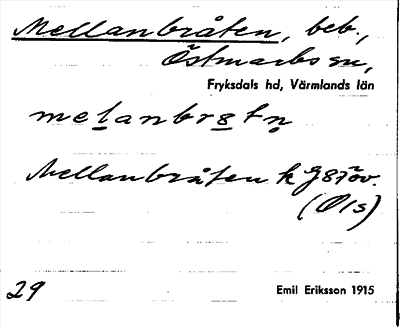 Mellanbråten, beb.,
Östmarks sn,
Fryksdals hd, Värmlands län
melanbrotn
Mellanbråten k
(Ols)
29
Emil Eriksson 1915